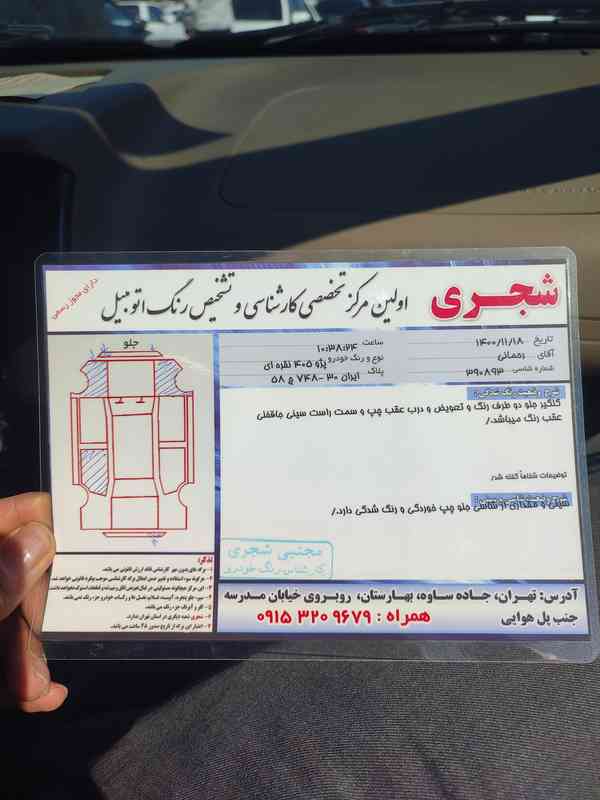 شجری
اولین مرکز تخصصی کارشناسی و تشخیص رنگ اتومبیل
دارای مجوز رسمی
تاریخ ۱۴۰۰/۱۱/۱۸
ساعت ۱۰:۳۸:۲۴
آقای رحمانی
نوع و رنگ خودرو پژو ۴۰۵ نقره ای
شماره شاسی ۳۹۰۸۹۳
پلاک ایران ۳۰ -۷۴۸ ج ۵۸
جلو
شرح وضعیت رنگ شدگی :
گلگیر جلو دو طرف رنگ و تعویض و درب عقب چپ و سمت راست سینی جاقفلی
عقب رنگ میباشد./
توضیحات شفاهاً گفته شد/
سینی و مقداری از شاسی جلو چپ خوردگی و رنگ شدگی دارد./
مجتبی شجری
کارشناس رنگ خودرو
تذکر:
آدرس: تهران، جاده ساوه، بهارستان، روبروی خیابان مدرسه
جنب پل هوایی
همراه : ۰۹۱۵ ۳۲۰ ۹۶۷۹